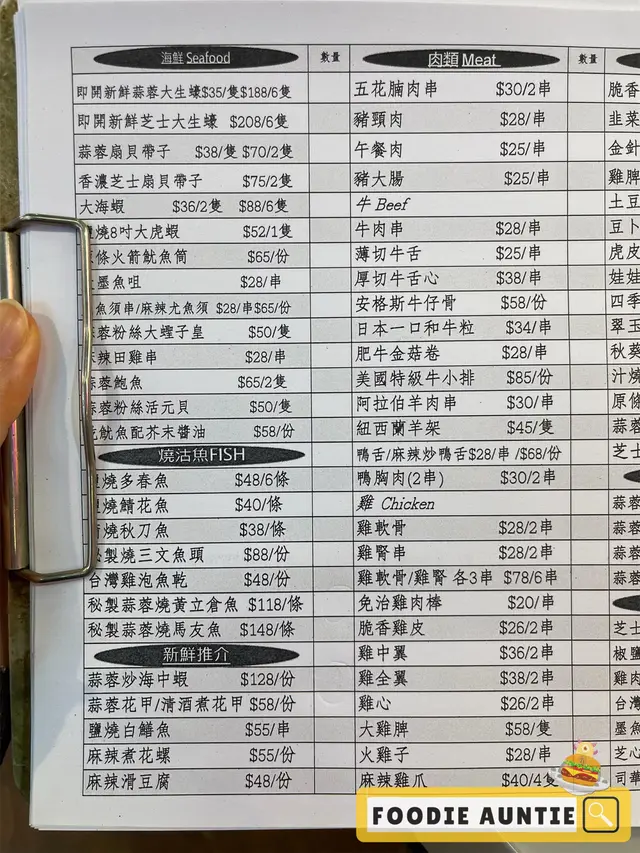 海鮮 Seafood 數量
即開新鮮蒜蓉大生蠔$35/隻$188/6隻
即開新鮮芝士大生蠔 $208/6隻
蒜蓉扇貝帶子 $38/隻 $70/2隻
香濃芝士扇貝帶子 $75/2隻
大海蝦 $36/2隻 $88/6隻
燒8吋大虎蝦 $52/1隻
條火箭魷魚筒 $65/份
墨魚咀 $28/串
魚須串/麻辣尤魚須 $28/串$65/份
蓉粉絲大蟶子皇 $50/隻
辣田雞串 $28/串
蓉鮑魚 $65/2隻
蒜蓉粉絲活元貝 $50/隻
魷魚配芥末醬油 $58/份
燒沽魚FISH
燒多春魚 $48/6條
燒鯖花魚 $40/條
燒秋刀魚 $38/條
製燒三文魚頭 $88/份
台灣雞泡魚乾 $48/份
秘製蒜蓉燒黃立倉魚 $118/條
秘製蒜蓉燒馬友魚 $148/條
新鮮推介
蒜蓉炒海中蝦 $128/份
蒜蓉花甲/清酒煮花甲 $58/份
鹽燒白鱔魚 $55/串
麻辣煮花螺 $55/份
麻辣滑豆腐 $48/份
肉類 Meat 數量
五花腩肉串 $30/2串
豬頸肉 $28/串
午餐肉 $25/串
豬大腸 $25/串
牛 Beef
牛肉串 $28/串
薄切牛舌 $25/串
厚切牛舌心 $38/串
安格斯牛仔骨 $58/份
日本一口和牛粒 $34/串
肥牛金菇卷 $28/串
美國特級牛小排 $85/份
阿拉伯羊肉串 $30/串
紐西蘭羊架 $45/隻
鴨舌/麻辣炒鴨舌$28/串 /$68/份
鴨胸肉(2串) $30/2串
雞 Chicken
雞軟骨 $28/2串
雞腎串 $28/2串
雞軟骨/雞腎 各3串 $78/6串
免治雞肉棒 $20/串
脆香雞皮 $26/2串
雞中翼 $36/2串
雞全翼 $38/2串
雞心 $26/2串
大雞脾 $58/隻
火雞子 $28/串
麻辣雞爪 $40/4隻
脆香
韭菜
金針
雞脾
土豆
豆卜
虎皮
娃娃
四季
翠玉
秋葵
汁燒
原條
蒜蓉
芝士
蒜蓉
蒜蓉
蒜蓉
芝士
椒鹽
雞肉
台灣
墨魚
芝心
司華
FOODIE AUNTIE